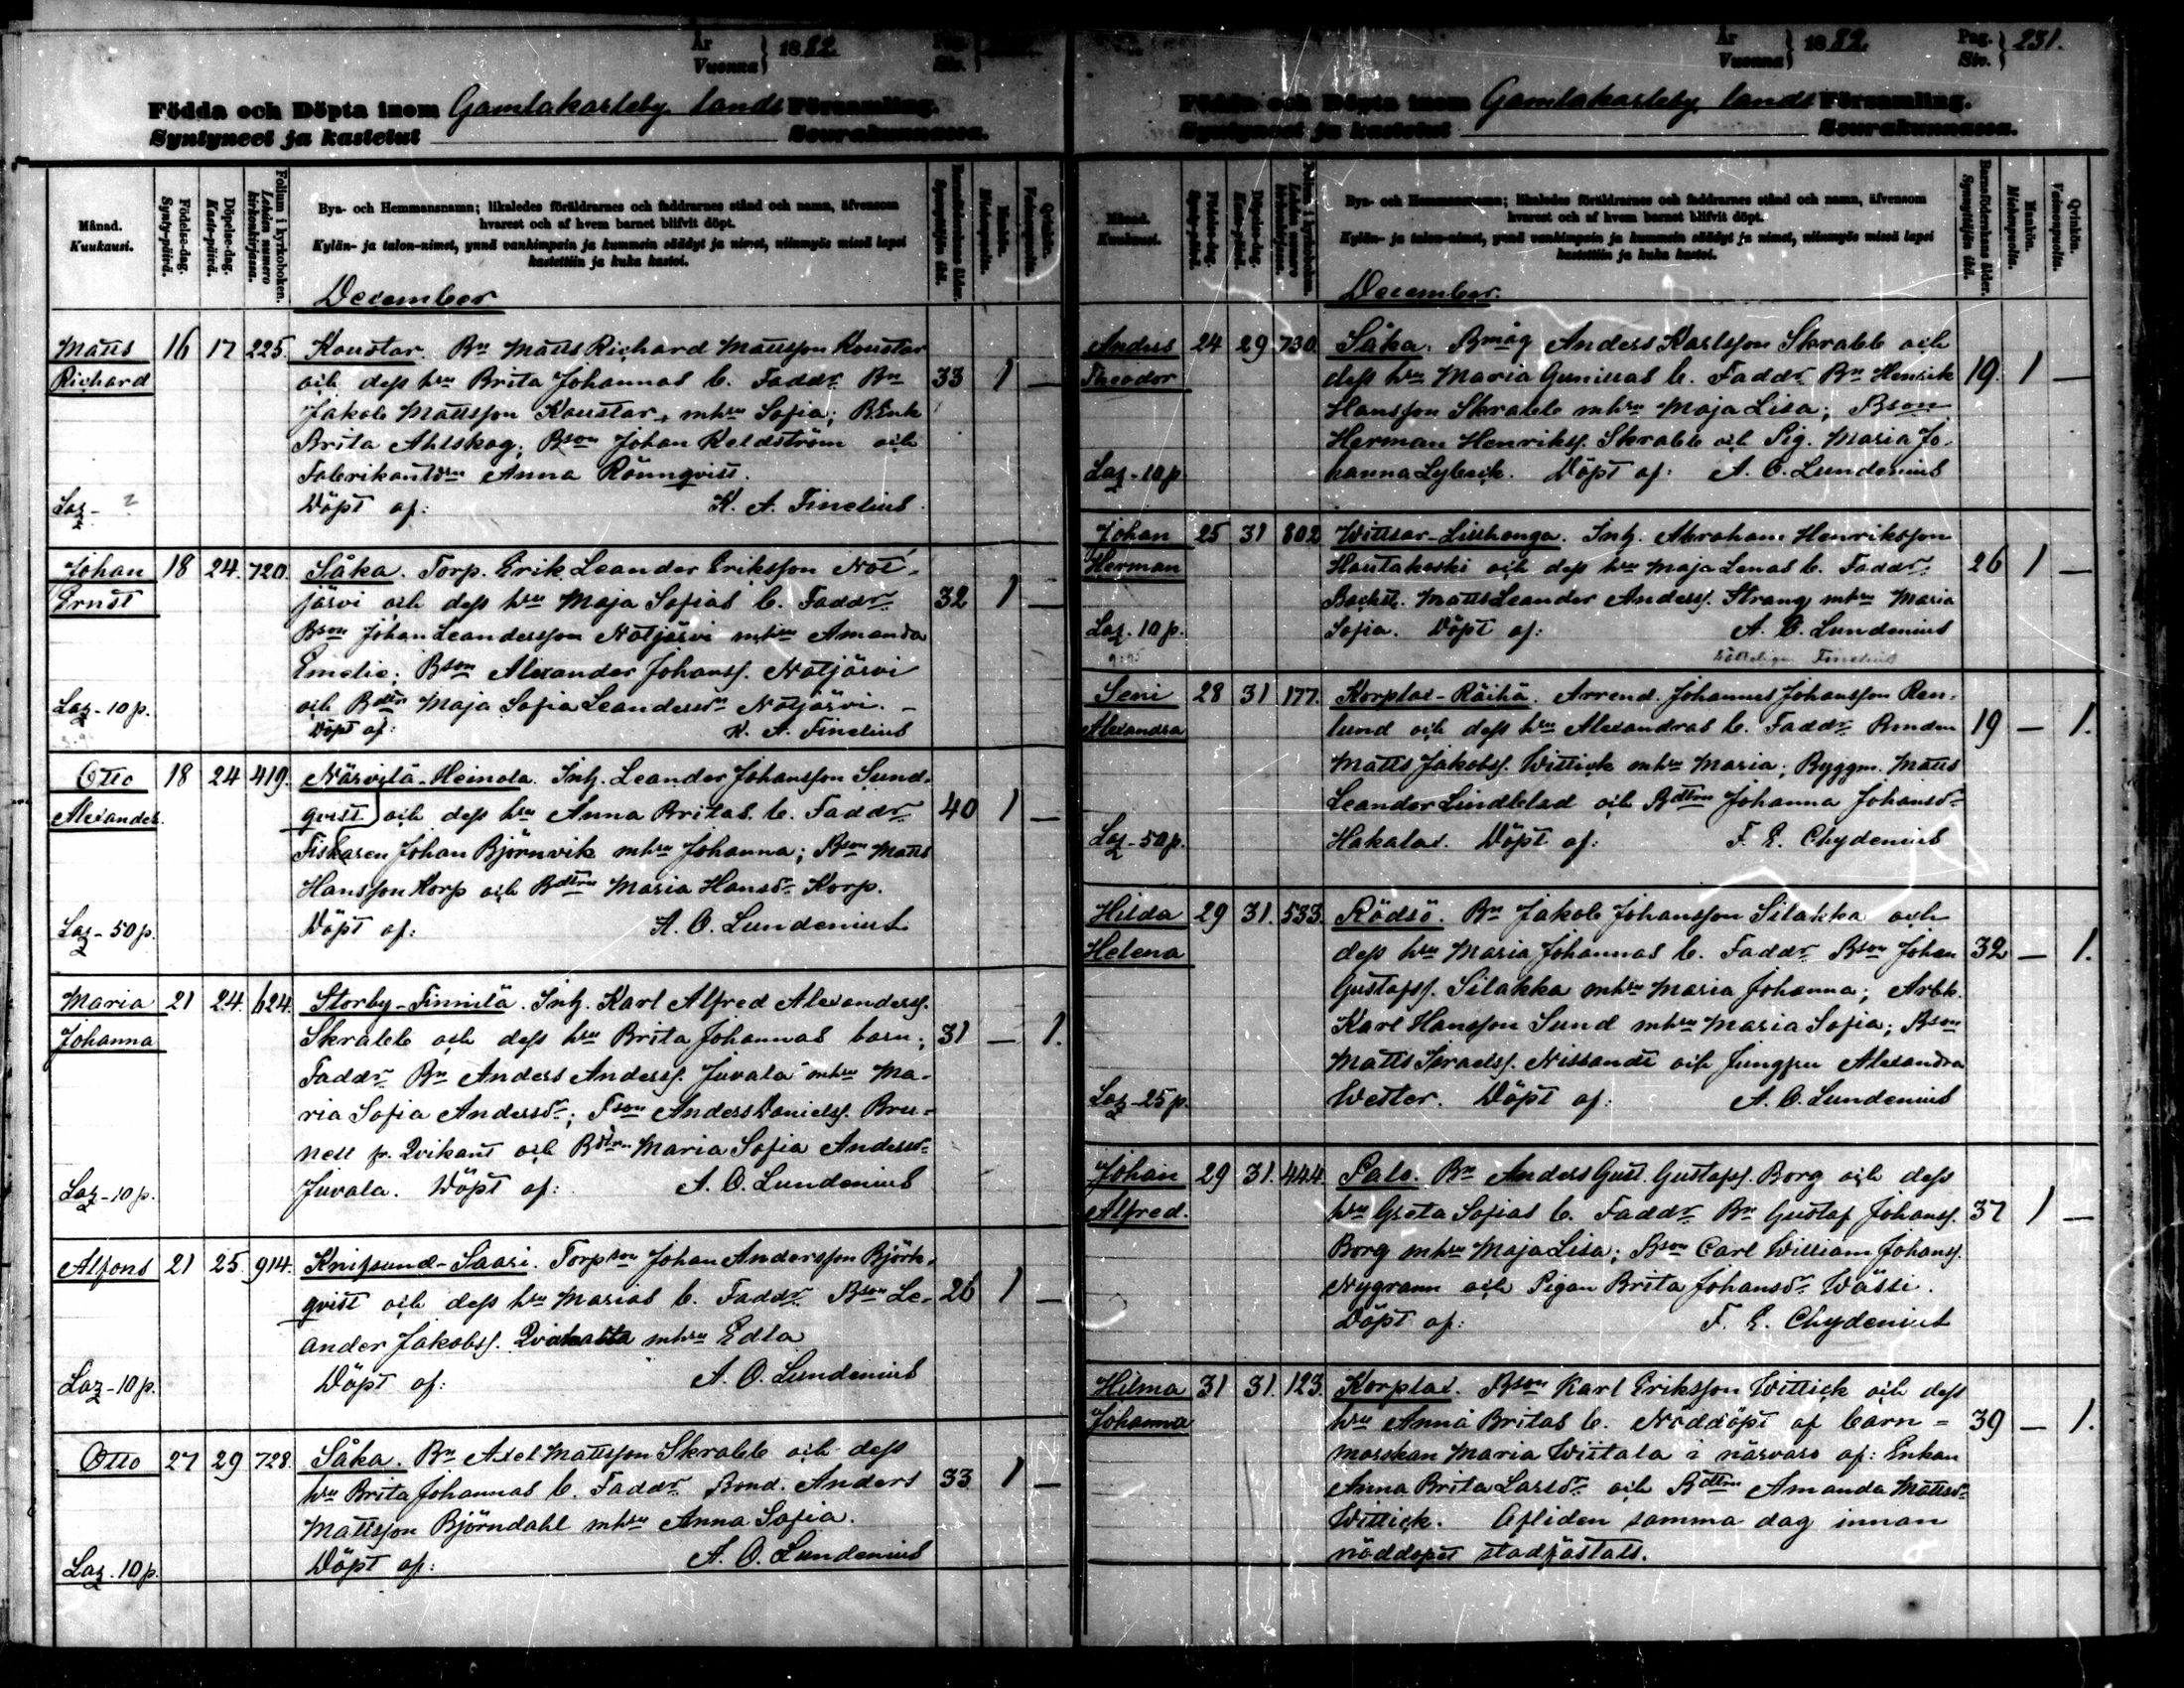 År
Vuonna } 1882
Födda och Döpta inom Gamlakarleby lands Församling.
Syntyneet ja kastetut Seurakunnassa.
Månad.
Kuukausi.
Födelse-dag.
Synty-päivä.
Döpelse-dag.
Kaste-päivä.
Folium i kyrkoboken.
Lehden numero kirkonkirjassa.
Bya- och Hemmansnamn; likaledes föräldrarnes och faddrarnes stånd och namn, äfvensom
hvarest och af hvem barnet blifvit döpt.
Kylän- ja talon-nimet, ynnä vanhimpain ja kummein säädyt ja nimet, niinmyös missä lapsi
kastettiin ja kuka kastoi.
Barnföderskans ålder.
Synnyttäjän ikä.
Mankön.
Miehenpuolia.
Qvinkön.
Vaimonpuolia.
December
Matts 16 17 225. Koustar. Bn Matts Richard Mattsson Koustar
Richard och dess hru Brita Johannas b. Faddr Bn 33 1 —
Jakob Mattsson Koustar, mhru Sofia; B.Enk
Brita Ahlskog; Bson Johan Keldström och
Fabrikantdrn Anna Rönnqvist.
Laz - ? Döpt af: K. A. Finelius
Johan 18 24. 720. Såka. Torp. Erik Leander Eriksson Not-
Ernst järvi och dess hru Maja Sofias b. Faddr 32 1 —
Bson Johan Leandersson Notjärvi mhru Amanda
Emelie; Bson Alexander Johanss. Notjärvi
Laz - 10 p. och Bdtrn Maja Sofia Leandersdr Notjärvi. —
Döpt af: K. A. Finelius
Otto 18 24 419. Närvilä-Heinola. Inh. Leander Johansson Sund-
Alexander. qvist och dess hru Anna Britas b. Faddr 40 1 —
Fiskaren Johan Björnvik mhru Johanna; Bson Matts
Hansson Korp och Bdtrn Maria Hansdr Korp.
Laz - 50 p. Döpt af: A. O. Lundenius
Maria 21 24. 624. Storby-Finnilä. Inh. Karl Alfred Alexanderss.
Johanna Skrabb och dess hru Brita Johannas barn; 31 — 1.
Faddr Bn Anders Anderss. Juvala mhru Ma-
ria Sofia Andersdr; Fson Anders Danielss. Bru-
nell fr. Qvikant och Bdtrn Maria Sofia Andersdr
Laz - 10 p. Juvala. Döpt af: A. O. Lundenius
Alfons 21 25. 914. Knifsund-Saari. Torpson Johan Andersson Björk-
qvist och dess hru Marias b. Faddr Bson Le- 26 1 —
ander Jakobss. mhru Edla
Laz - 10 p. Döpt af: A. O. Lundenius
Otto 27 29 728. Såka. Bn Axel Mattsson Skrabb och dess
hru Brita Johannas b. Faddr Bond. Anders 33 1 —
Mattsson Björndahl mhru Anna Sofia.
Laz. 10 p. Döpt af: A. O. Lundenius
År
Vuonna } 1882
Pag.
Siv. } 231.
Födda och Döpta inom Gamlakarleby lands Församling.
Syntyneet ja kastetut Seurakunnassa.
Månad.
Kuukausi.
Födelse-dag.
Synty-päivä.
Döpelse-dag.
Kaste-päivä.
Folium i kyrkoboken.
Lehden numero kirkonkirjassa.
Bya- och Hemmansnamn; likaledes föräldrarnes och faddrarnes stånd och namn, äfvensom
hvarest och af hvem barnet blifvit döpt.
Kylän- ja talon-nimet, ynnä vanhimpain ja kummein säädyt ja nimet, niinmyös missä lapsi
kastettiin ja kuka kastoi.
Barnföderskans ålder.
Synnyttäjän ikä.
Mankön.
Miehenpuolia.
Qvinkön.
Vaimonpuolia.
December.
Anders 24 29 730. Såka. Bmåg Anders Karlsson Skrabb och
Theodor dess hru Maria Gunillas b. Faddr Bn Henrik 19. 1 —
Hansson Skrabb mhru Maja Lisa; Bson
Herman Henrikss. Skrabb och Pig. Maria Jo-
Laz - 10 p hanna Lybeck. Döpt af: A. O. Lundenius
Johan 25 31 802 Wittsar-Lisshonga. Inh. Abraham Henriksson
Herman Hautakoski och dess hru Maja Lenas b. Faddr 26 1 —
Backst. Matts Leander Anderss. Strang mhru Maria
Laz. 10 p. Sofia. Döpt af: A. O. Lundenius
Finelius
Seni 28 31 177. Korplax-Räihä. Arrend. Johannes Johansson Ren-
Alexandra lund och dess hru Alexandras b. Faddr Bonden 19 — 1.
Matts Jakobss. Wittick mhru Maria; Byggm. Matts
Leander Lindblad och Bdtrn Johanna Johansdr
Laz - 50 p. Hakalax. Döpt af: F. E. Chydenius
Hilda 29 31. 533. Rödsö. Bn Jakob Johansson Silakka och
Helena dess hru Maria Johannas b. Faddr Bson Johan 32 — 1.
Gustafss. Silakka mhru Maria Johanna; Arbk.
Karl Hansson Sund mhru Maria Sofia; Bson
Matts Israelss. Nissandt och Jungfru Alexandra
Laz - 25 p. Wester. Döpt af: A. O. Lundenius
Johan 29 31. 444. Palo. Bn Anders Gust. Gustafss. Borg och dess
Alfred. hru Greta Sofias b. Faddr Bn Gustaf Johanss. 37 1 —
Borg mhru Maja Lisa; Bson Carl William Johanss.
Nygrann och Pigan Brita Johansdr Wässi.
Döpt af: F. E. Chydenius
Hilma 31 31. 123. Korplax. Bson Karl Eriksson Wittick och dess
Johanna hru Anna Britas b. Nöddöpt af barn- 39 — 1.
morskan Maria Wiitala i närvaro af: Enkan
Anna Brita Larsdr och Bdtrn Amanda Mattsdr
Wittick. Afliden samma dag innan
nöddopet stadfästats.